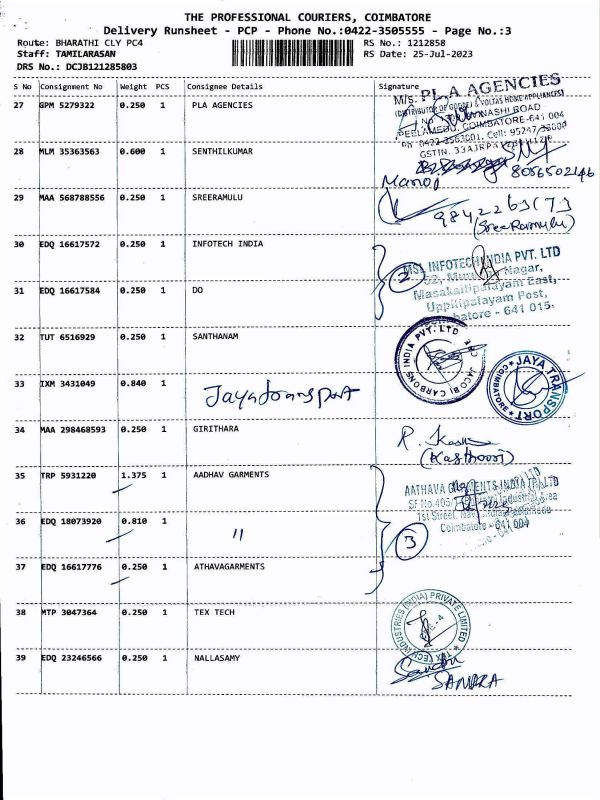 THE PROFESSIONAL COURIERS, COIMBATORE
Delivery Runsheet - PCP - Phone No.:0422-3505555 - Page No.:3
Route: BHARATHI CLY PC4 RS No.: 1212858
Staff: TAMILARASAN RS Date: 25-Jul-2023
DRS No.: DCJB121285803
S No Consignment No Weight PCS Consignee Details Signature
27 GPM 5279322 0.250 1 PLA AGENCIES
M/s. P.L.A AGENCIES
COIMBATORE-641 004
28 MLM 35363563 0.600 1 SENTHILKUMAR
Manoj 8056502146
29 MAA 568788556 0.250 1 SREERAMULU
(SreeRamulu)
30 EDQ 16617572 0.250 1 INFOTECH INDIA
INFOTECH INDIA PVT. LTD
Nagar,
Masakalipalayam East,
Uppilipalayam Post,
641 015.
2
31 EDQ 16617584 0.250 1 DO
32 TUT 6516929 0.250 1 SANTHANAM
JACOBI CARBONS INDIA PVT. LTD
33 IXM 3431049 0.840 1 Jayatransport
JAYA TRANSPORT
COIMBATORE
34 MAA 298468593 0.250 1 GIRITHARA
(Kasthoori)
35 TRP 5931220 1.375 1 AADHAV GARMENTS
AATHAVA GARMENTS INDIA (P) LTD
1st Street,
Coimbatore - 641 004
36 EDQ 18073920 0.810 1 "
3
37 EDQ 16617776 0.250 1 ATHAVAGARMENTS
38 MTP 3047364 0.250 1 TEX TECH
TEX TECH INDUSTRIES (INDIA) PRIVATE LIMITED
39 EDQ 23246566 0.250 1 NALLASAMY